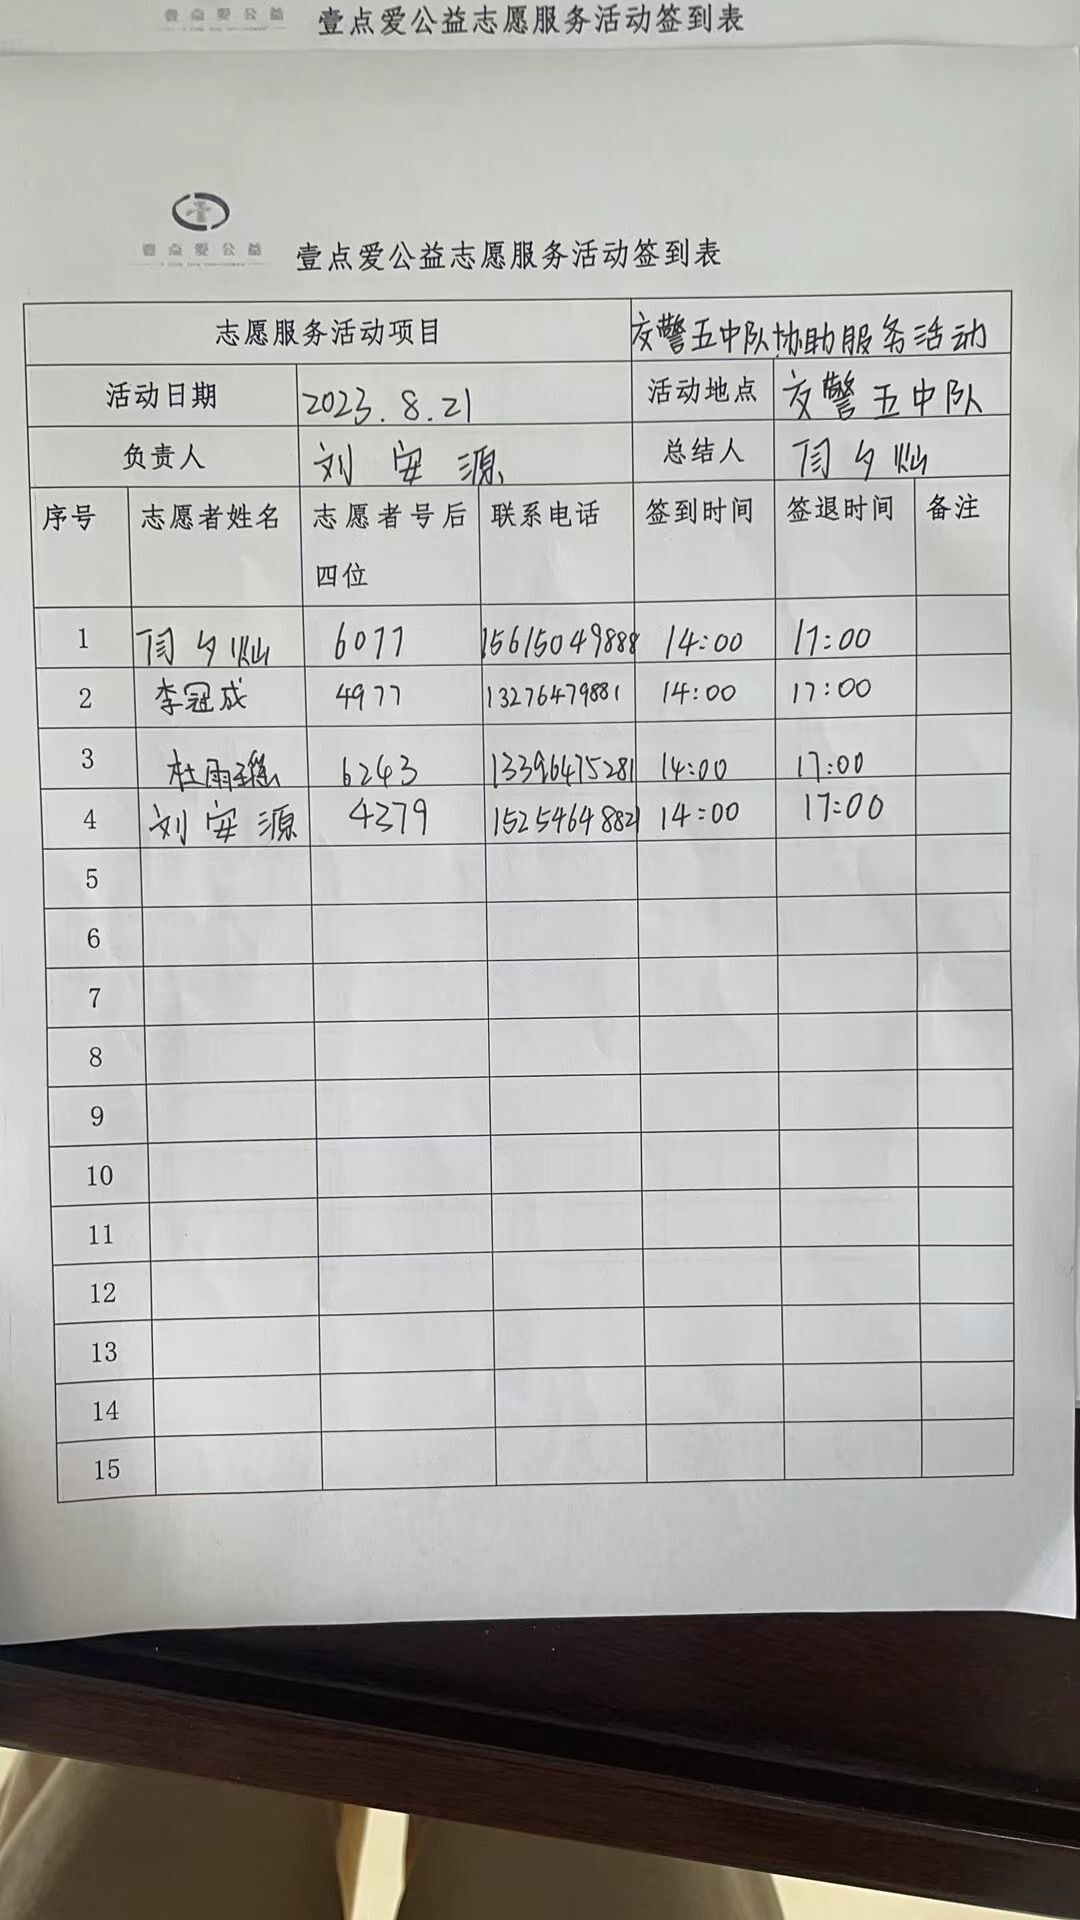 壹点爱公益
壹点爱公益志愿服务活动签到表
壹点爱公益
壹点爱公益志愿服务活动签到表
志愿服务活动项目 交警五中队协助服务活动
活动日期 2023.8.21 活动地点 交警五中队
负责人 刘安源 总结人 闫夕灿
序号 志愿者姓名 志愿者号后四位 联系电话 签到时间 签退时间 备注
1 闫夕灿 6077 15615049888 14:00 17:00
2 李冠成 4977 13276479881 14:00 17:00
3 杜雨瑶 6243 13396475281 14:00 17:00
4 刘安源 4379 15254648821 14:00 17:00
5
6
7
8
9
10
11
12
13
14
15